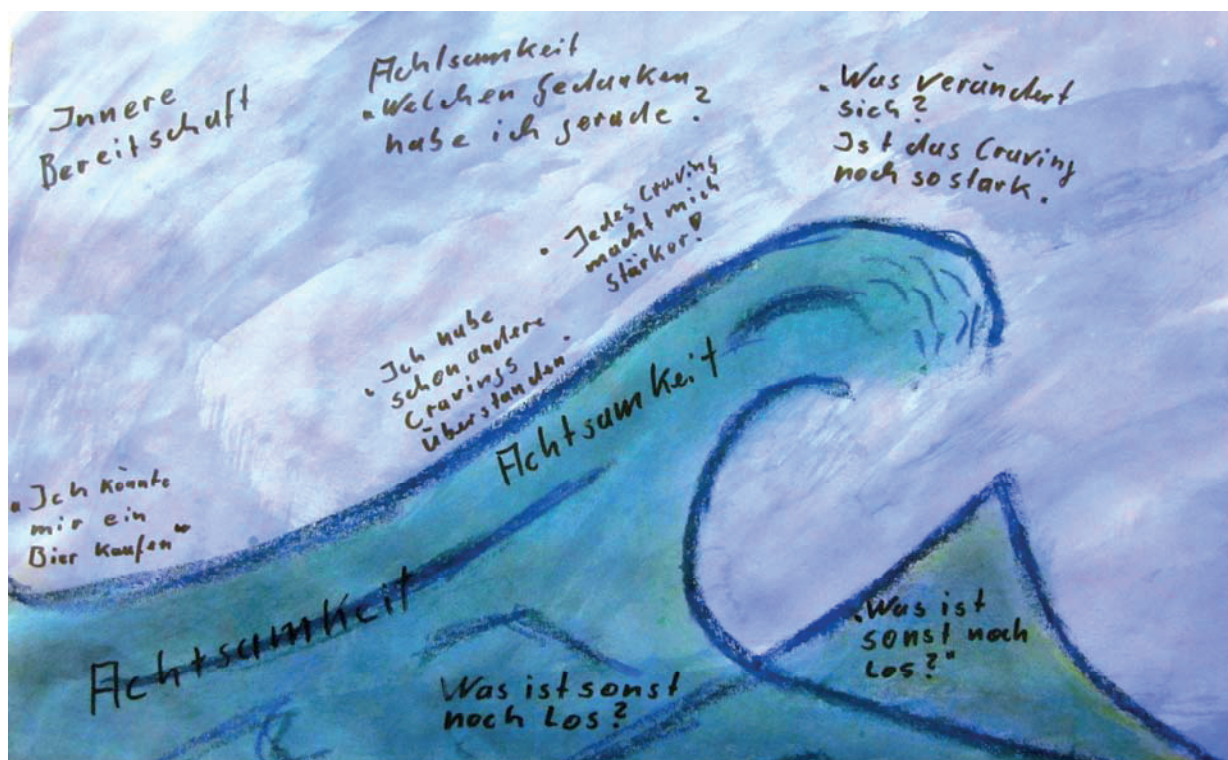 Innere
Bereitschaft
Achtsamkeit
"Welchen Gedanken
habe ich gerade?
"Was verändert
sich?
Ist das Craving
noch so stark.
"Jedes Craving
macht mich
stärker!
"Ich habe
schon andere
Cravings
überstanden"
Achtsamkeit
"Ich könnte
mir ein
Bier kaufen"
Achtsamkeit
Was ist sonst
noch Los?
"Was ist
sonst noch
Los?"